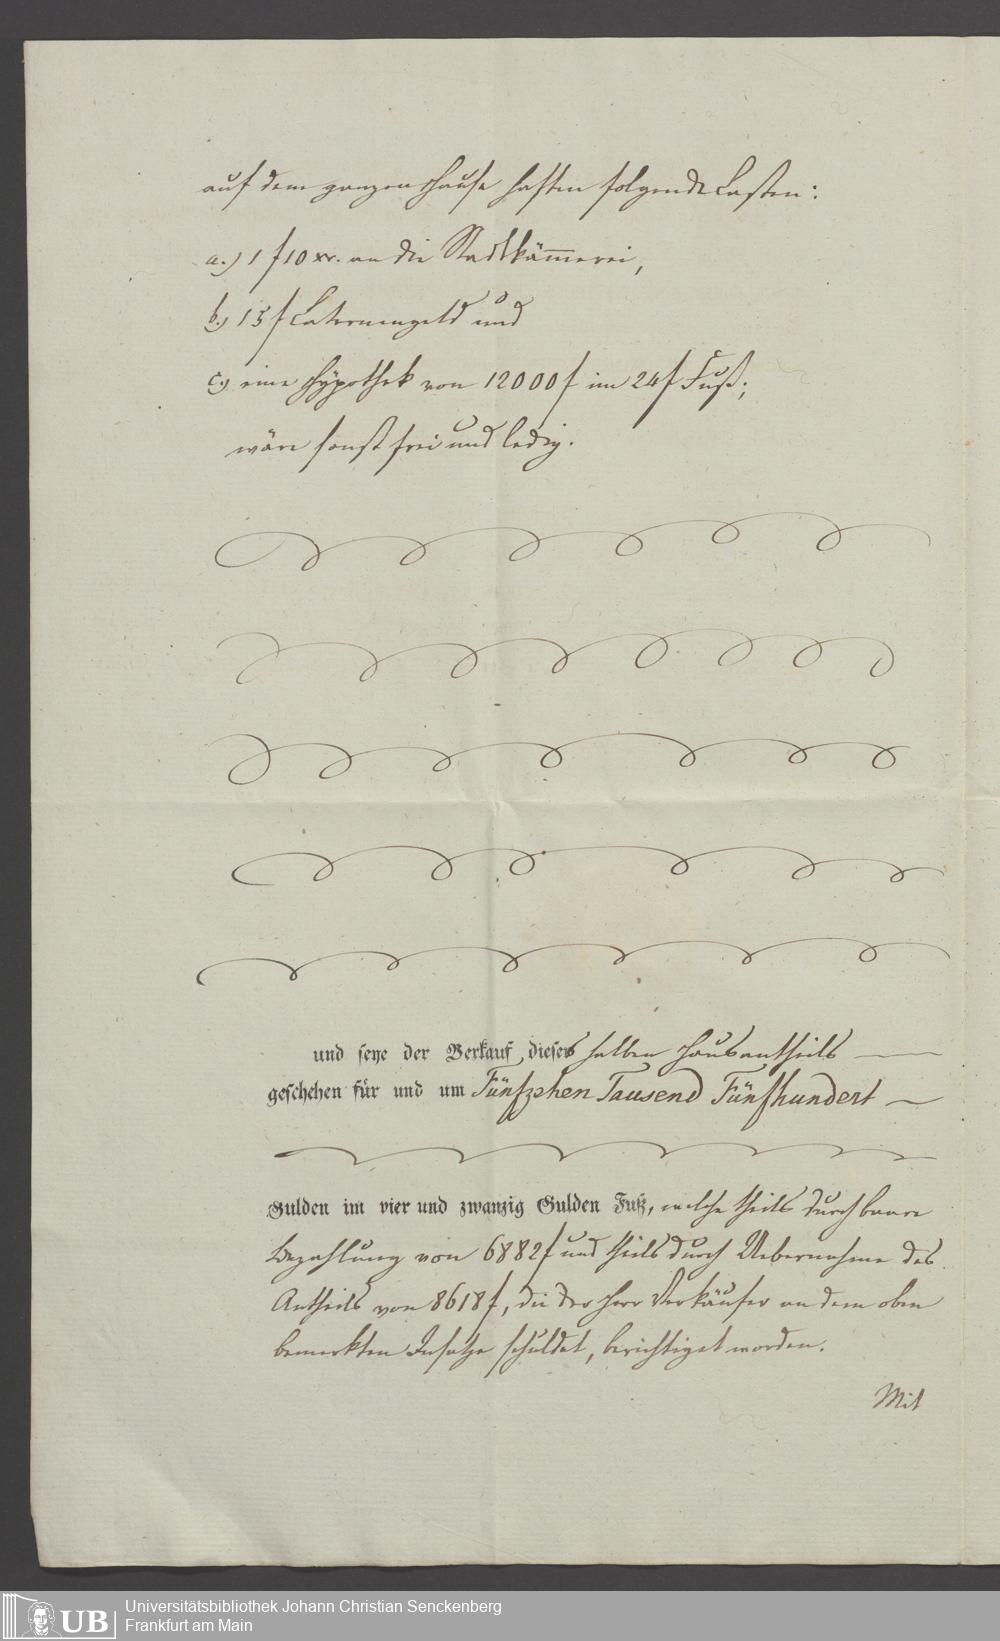 auf dem ganzen Hause haften folgende Lasten:
a.) 1 f 10 xr. an die Stadtkämmerei,
b.) 15 f Laternengeld und
c.) eine Hypothek von 12000 f im 24 f Fuß;
wäre sonst frei und ledig.
und seye der Verkauf dieses halben Hausantheils
geschehen für und um Fünfzehen Tausend Fünfhundert
Gulden im vier und zwanzig Gulden Fuß, welche theils durch baare
Bezahlung von 6882 f und theils durch Uebernahme des
Antheils von 8618 f, die der Herr Verkäufer an dem oben
bemerkten Insatze schuldet, berichtiget worden.
Mit
UB Universitätsbibliothek Johann Christian Senckenberg
Frankfurt am Main